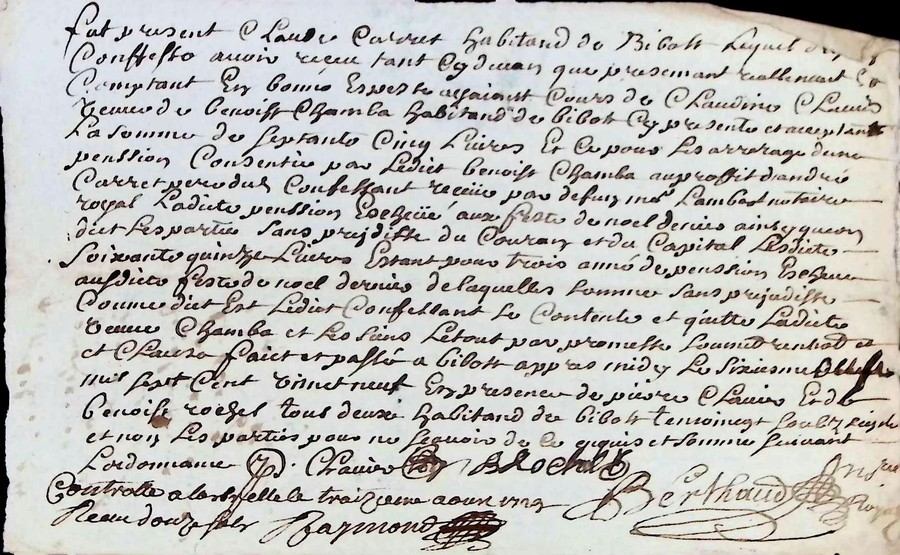 fut present Claude Carret habitand de Bibost lequel de
Confesse avoir receu tant cydevan que presemant reallemant
Comptant En bonne Espesse ayant Cours de Claudine Clavier
veuve de benoist Chamba habitand de bibost Cy presente et acceptant
La somme de septante Cinq Livres Et Ce pour Les arrerage dune
penssion Consentie par Ledict benoist Chamba au proffit dandré
Carret perodus Confessant receue par defun me Lambert notaire
royal Ladicte penssion Escheüe aux feste de noel dernier ainsy queon
dict Les partie sans prejdisse du Couran et du Capital Lesdicte
Soixante quinze Livres Estant pour trois anné de penssion Escheue
ausdicte feste de noel dernier de laquelles somme sans prejudisse
Comme dict Est Ledict Confessant se Contente et quitte Ladicte
veuve Chamba et Les siens Letout par promesse soumet renhoist et
et Clauze faict et passé a bibost appres midy Le sixiesme
mil sept Cent vint neuf En presence de pierre Clavier Et de
benoist rochel tous deux habitand de bibost temoingt soubz signe
et non Les parties pour ne sçavoir de Ce enquis et somme suivant
Lordonnance P. Clavier B Rochel
Controlle a larbrelle le traizieme avril 1729 Berthaud
Reçu douze sols Raymond